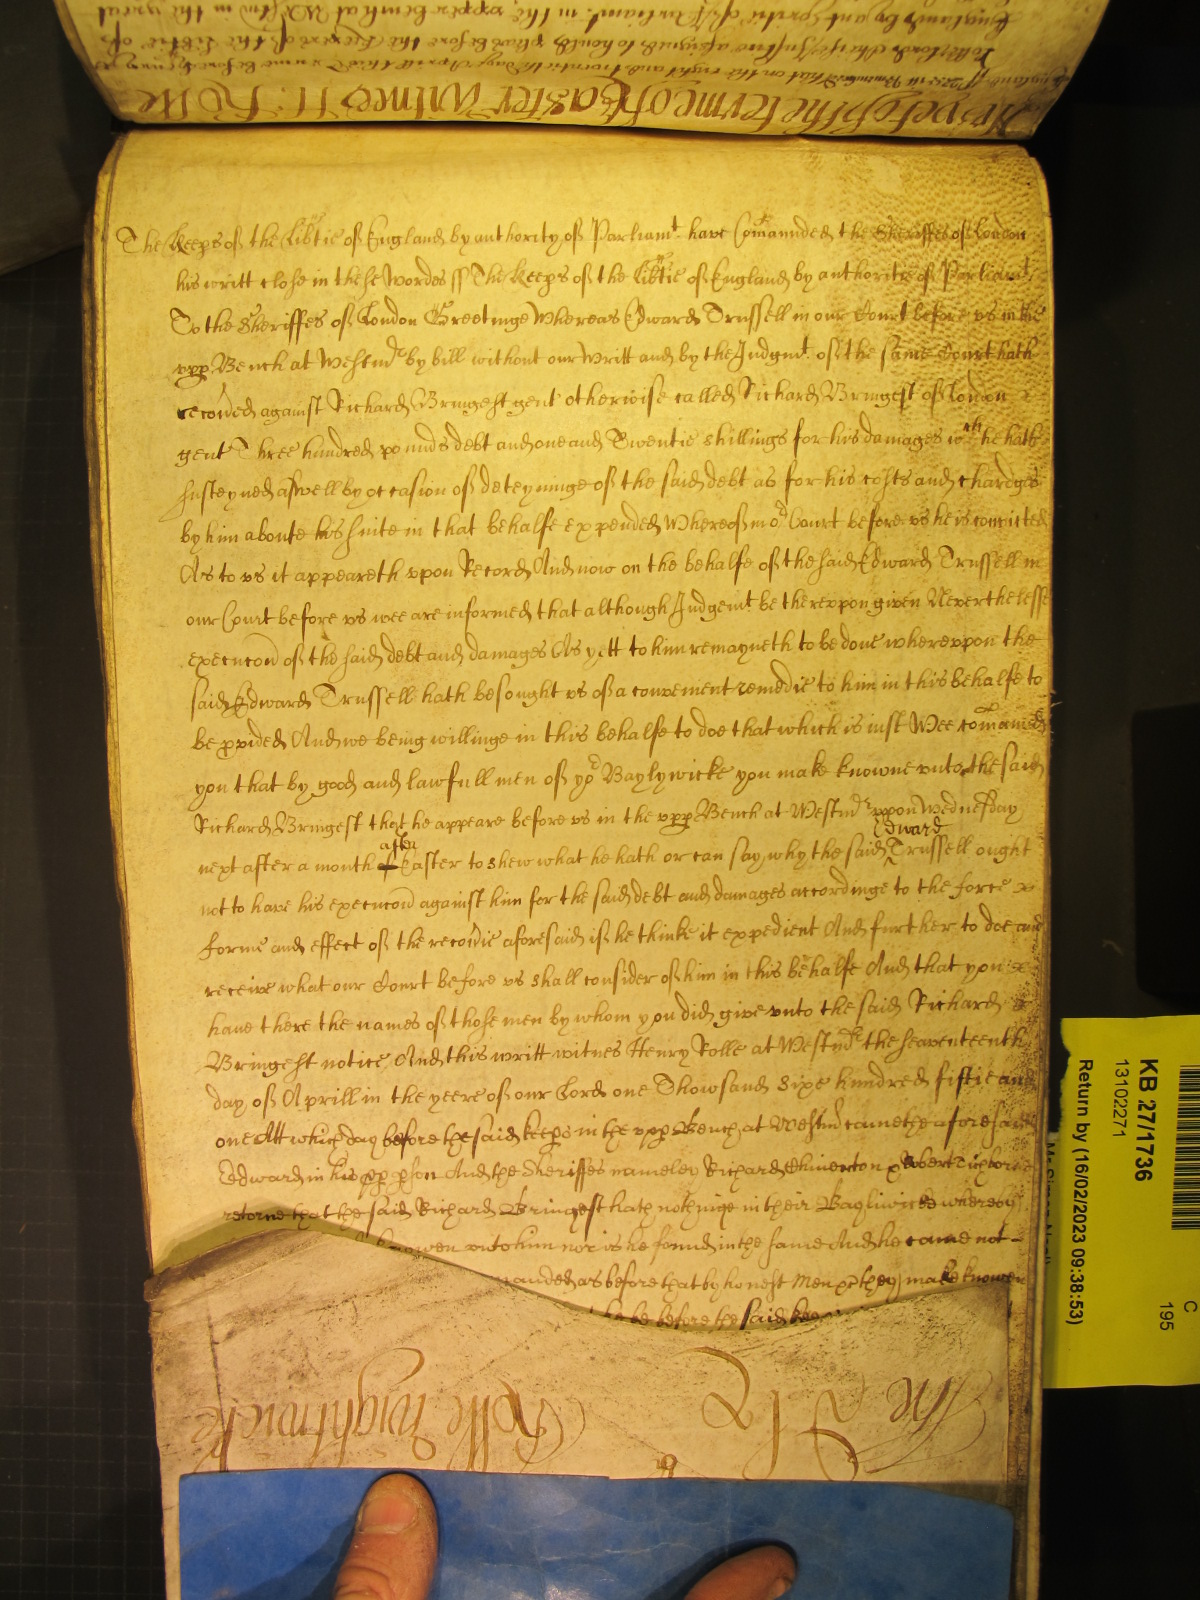 The Keeps of the Libtie of England by authority of Parliamt. have Comaunded the Sheriffes of London
his writt close in these Wordes ss The Keeps of the Libtie of England by authoritie of Parliamt.
To the Sheriffes of London Greetinge Whereas Edward Trussell in our Court before us in the
upp Bench at Westmr by bill without our Writt and by the Judgmt. of the same Court hath
recovded against Richard Bringest gent otherwise called Richard Bringest of London
gent Three hundred pounds debt and one and Twentie shillings for his damages wch he hath
susteyned aswell by occasion of deteyninge of the said debt as for his costs and chardges
by him aboute his suite in that behalfe expended Whereof in or Court before us he is convicted
As to us it appeareth upon Record And now on the behalfe of the said Edward Trussell in
our Court before us wee are informed that although Judgemt be thereupon given Neverthelesse
execucon of the said debt and damages As yett to him remayneth to be done whereuppon the
said Edward Trussell hath besought us of a convenient remedie to him in this behalfe to
be pvided And we being willinge in this behalfe to doe that which is iust Wee comaunde
you that by good and lawfull men of yor Baylywicke you make knowne unto the said
Richard Bringest that he appeare before us in the upp Bench at Westmr uppon Wednesday
next after a month after Easter to shew what he hath or can say why the said Edward Trussell ought
not to have his execucon against him for the said debt and damages accordinge to the force
forme and effect of the recovie aforesaid if he thinke it expedient And further to doe and
receive what our Court before us shall consider of him in this behalfe And that you
have there the names of those men by whom you did give unto the said Richard
Bringest notice And this writt witnes Henry Rolle at Westmr the seaventeenth
day of Aprill in the yeere of our Lord one Thowsand sixe hundred fiftie and
one Att which day before the said keeps in the upp Bench at Westmr came the aforesaid
Edward in his pp pson And the Sheriffes nameley Richard Chiverton & Robert Tichborne
retorne that the said Richard Bringest hath nothinge in their Bayliwicke whereby
knowen unto him nor is he found in the same And he came not
anded as before that by honest Men &c they make knowen
he be before the said keeps
The
Rolle Wightwicke
Hopef of the terme of Easter Witnes H: Rolle
KB 27/1736
13102271
Return by (16/02/2023 09:38:53)
C
195